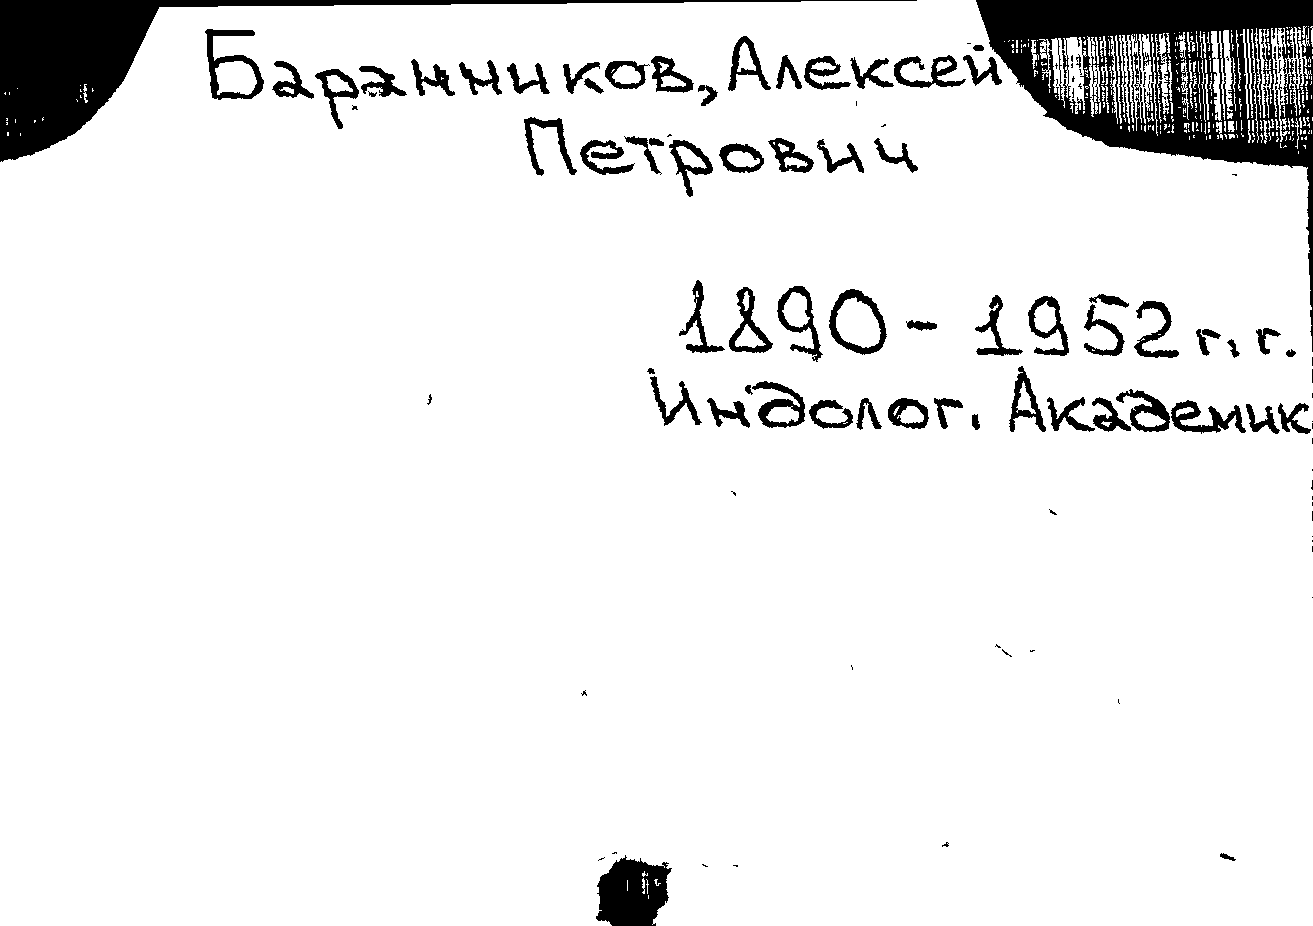 Баранников, Алексей
Петрович
1890 - 1952 г.г.
Индолог. Академик